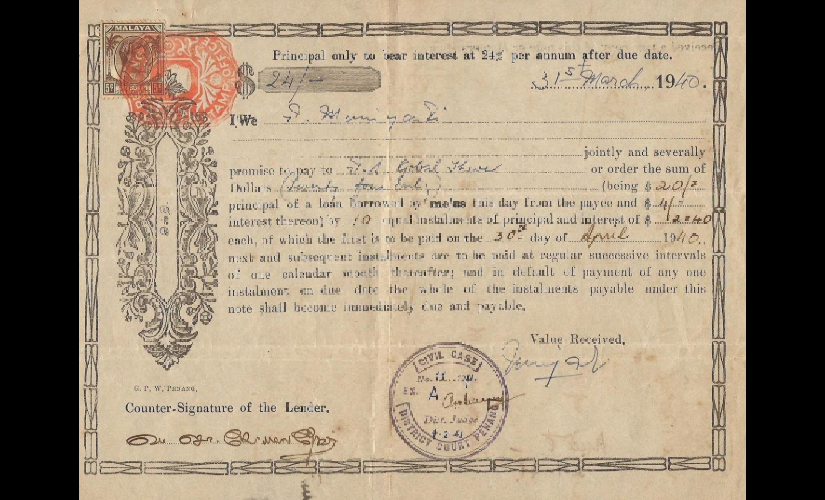 MALAYA
Principal only to bear interest at 24% per annum after due date.
$ 24/-
31st March 1940.
I/We
jointly and severally
promise to pay to or order the sum of
Dollars (Twenty four only) (being $ 20/-
principal of a loan borrowed by me/us this day from the payee and $ 4/-
interest thereon) by 10 equal instalments of principal and interest of $ 2=40
each, of which the first is to be paid on the 30th day of April 1940.
next and subsequent instalments are to be paid at regular successive intervals
of one calendar month thereafter; and in default of payment of any one
instalment on due date the whole of the instalments payable under this
note shall become immediately due and payable.
Value Received,
CIVIL CASE
A
Dist. Judge
DISTRICT COURT PENANG
G. P. W. PENANG.
Counter-Signature of the Lender.